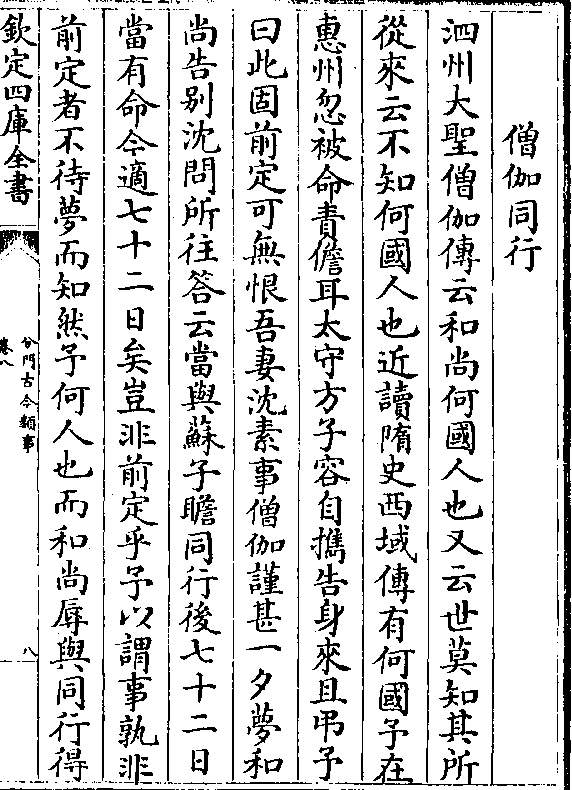 僧伽同行
泗州大聖僧伽傳云和尚何國人也又云世莫知其所
從來云不知何國人也近讀隋史西域傳有何國予在
惠州忽被命責儋耳太守方子容自攜告身來且弔予
曰此固前定可無恨吾妻沈素事僧伽謹甚一夕夢和
尚告别沈問所往答云當與蘇子瞻同行後七十二日
當有命今適七十二日矣豈非前定乎予以謂事孰非
前定者不待夢而知然予何人也而和尚辱與同行得
欽定四庫全書
分門古今類事
卷八
八